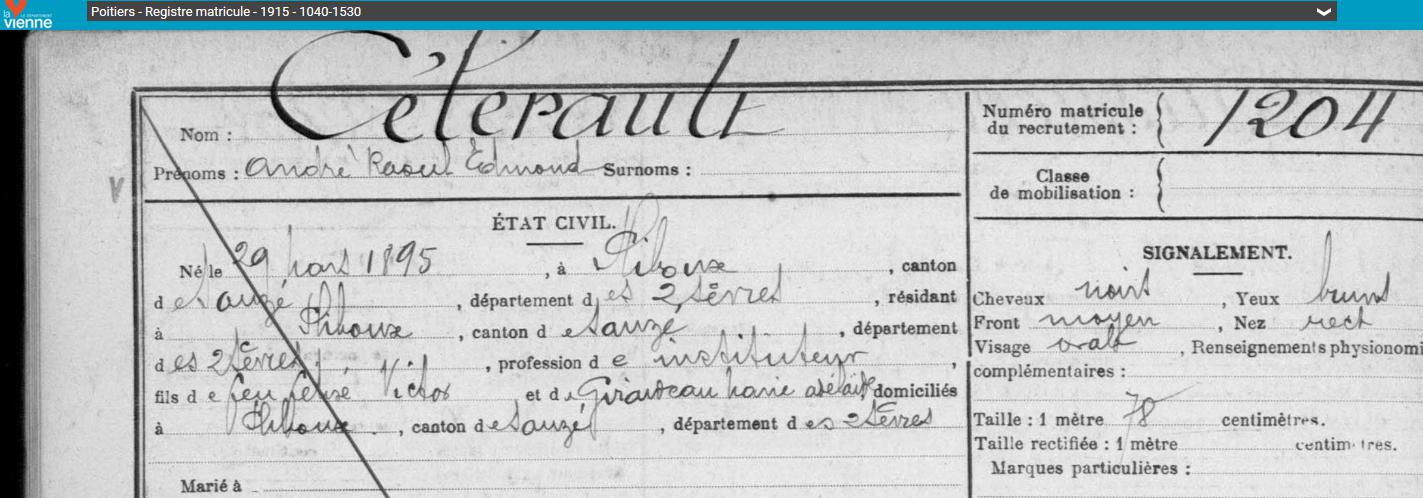 la
vienne
LE DÉPARTEMENT
Poitiers - Registre matricule - 1915 - 1040-1530
Céterault
Nom :
Prénoms : André Raoul Edmond Surnoms :
ÉTAT CIVIL.
Né le 29 Mars 1895, à Pliboux, canton
d e Sauzé, département d es 2 Sèvres, résidant
à Pliboux, canton d e Sauzé, département
d es 2 Sèvres, profession d e instituteur,
fils d e feu Victor et d e Girardeau Marie Adélaïde domiciliés
à Pliboux, canton d e Sauzé, département d es 2 Sèvres
Marié à
Numéro matricule
du recrutement : 1204
Classe
de mobilisation :
SIGNALEMENT.
Cheveux noirs, Yeux bruns
Front moyen, Nez rect
Visage ovale, Renseignements physionomi
complémentaires :
Taille : 1 mètre 78 centimètres.
Taille rectifiée : 1 mètre centimètres.
Marques particulières :